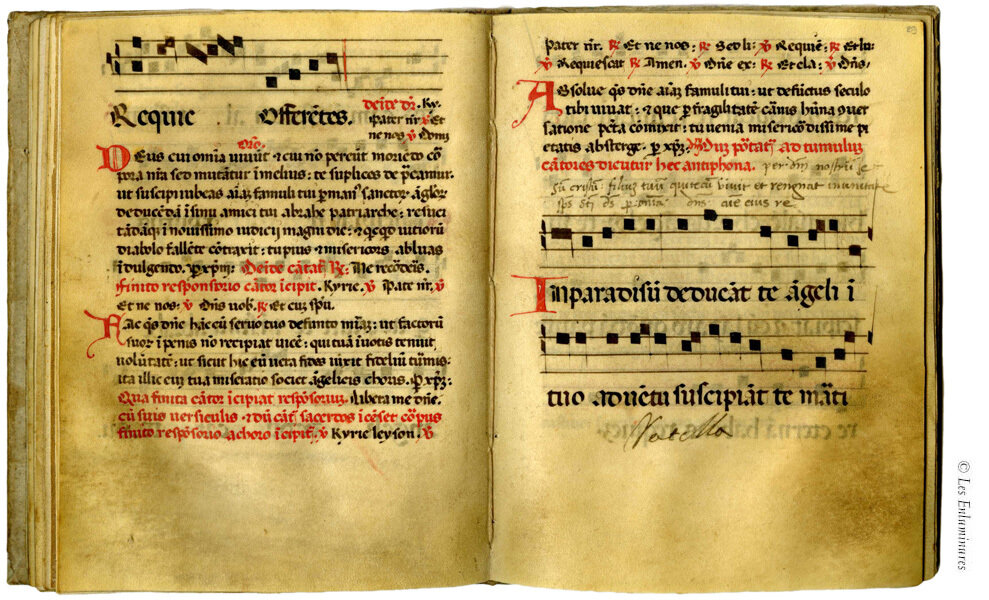 Requie Offerētes. deīde dr̄. Ky.
Pater nr̄ ℣ Et
ne nos ℣ Domi
Orō.
Deus cui omīa vivūt ⁊ cui nō pereūt moriēdo cō
pora nr̄a sed mutātur ī melius: te suplices dep̄camur.
ut suscipi iubeas aīaȝ famuli tui ꝑ manꝰ sanctoꝝ āgloꝝ
deducēdā ī sinu amici tui abrahe patriarche: resusci
tādāqȝ ī novissimo iudicij magni die: ⁊ qcqd vitiorū
diabolo fallēte cōtraxit: tu pius ⁊ misericors abluas
īdulgendo. ꝑ xp̄m: Deīde cātat̄ ℟: Ne recordeis.
finito responsorio cātor īcipit. Kyrie. ℣ Pate nr̄. ℣
Et ne nos: ℣ Dn̄s vob. ℟ Et cuȝ spū.
Fac q̄s dn̄e hāc cū servo tuo defunto mīaȝ: ut factorū
suoꝝ ī penis nō recipiat vicē: qui tuā ī votis tenuit
volūtatē: ut sicut hic eū vera fides iūxit fideliū turmis:
ita illic euȝ tua miseratio societ āgelicis choris. ꝑ xp̄ȝ:
Qua finita cātor īcipiat respōsoriuȝ. Libera me dn̄e.
cū suis versiculis ⁊ dū cāt̄ sacerdos īcēset corpus
finito respōsorio a choro īcipit̄. ℣ Kyrie leyson. ℣
89
Pater nr̄. ℟ Et ne nos: ℟ Sed li: ℣ Requiē: ℟ Et lu:
℣ Requiescat ℟ Amen. ℣ Dn̄e ex: ℟ Et cla: ℣ Dn̄s.
Absolve q̄s dn̄e aīaȝ famuli tui: ut defūctus seculo
tibi vivat: ⁊ que ꝑ fragilitatē carnis hūna cōver
satione pcc̄ta cōmixit: tu venia misericōdissime pi
etatis absterge. ꝑ xp̄ȝ: Dūȝ pōtat̄ ad tumuluȝ
cātores dicūtur hec antiphona. per dn̄m nostrū Je-
sū cristū filiuȝ tuū qui tecū vivit et rengnat in unitate
sp̄s sc̄ti ds̄ ꝑ omnia dn̄s que eius re
In paradisū deducāt te āgeli ī
tuo advētu suscipiāt te marti
© Les Enluminures